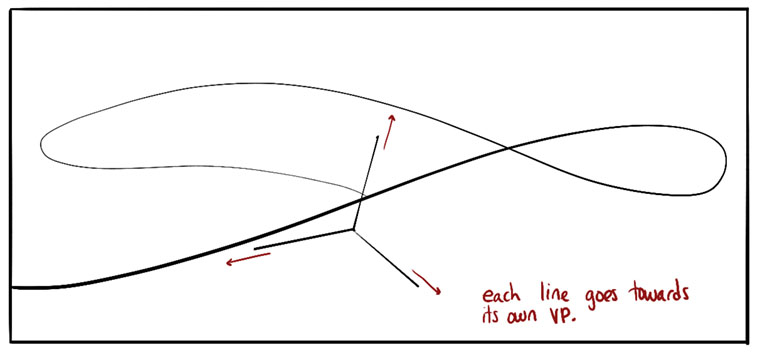 each line goes towards
its own VP.